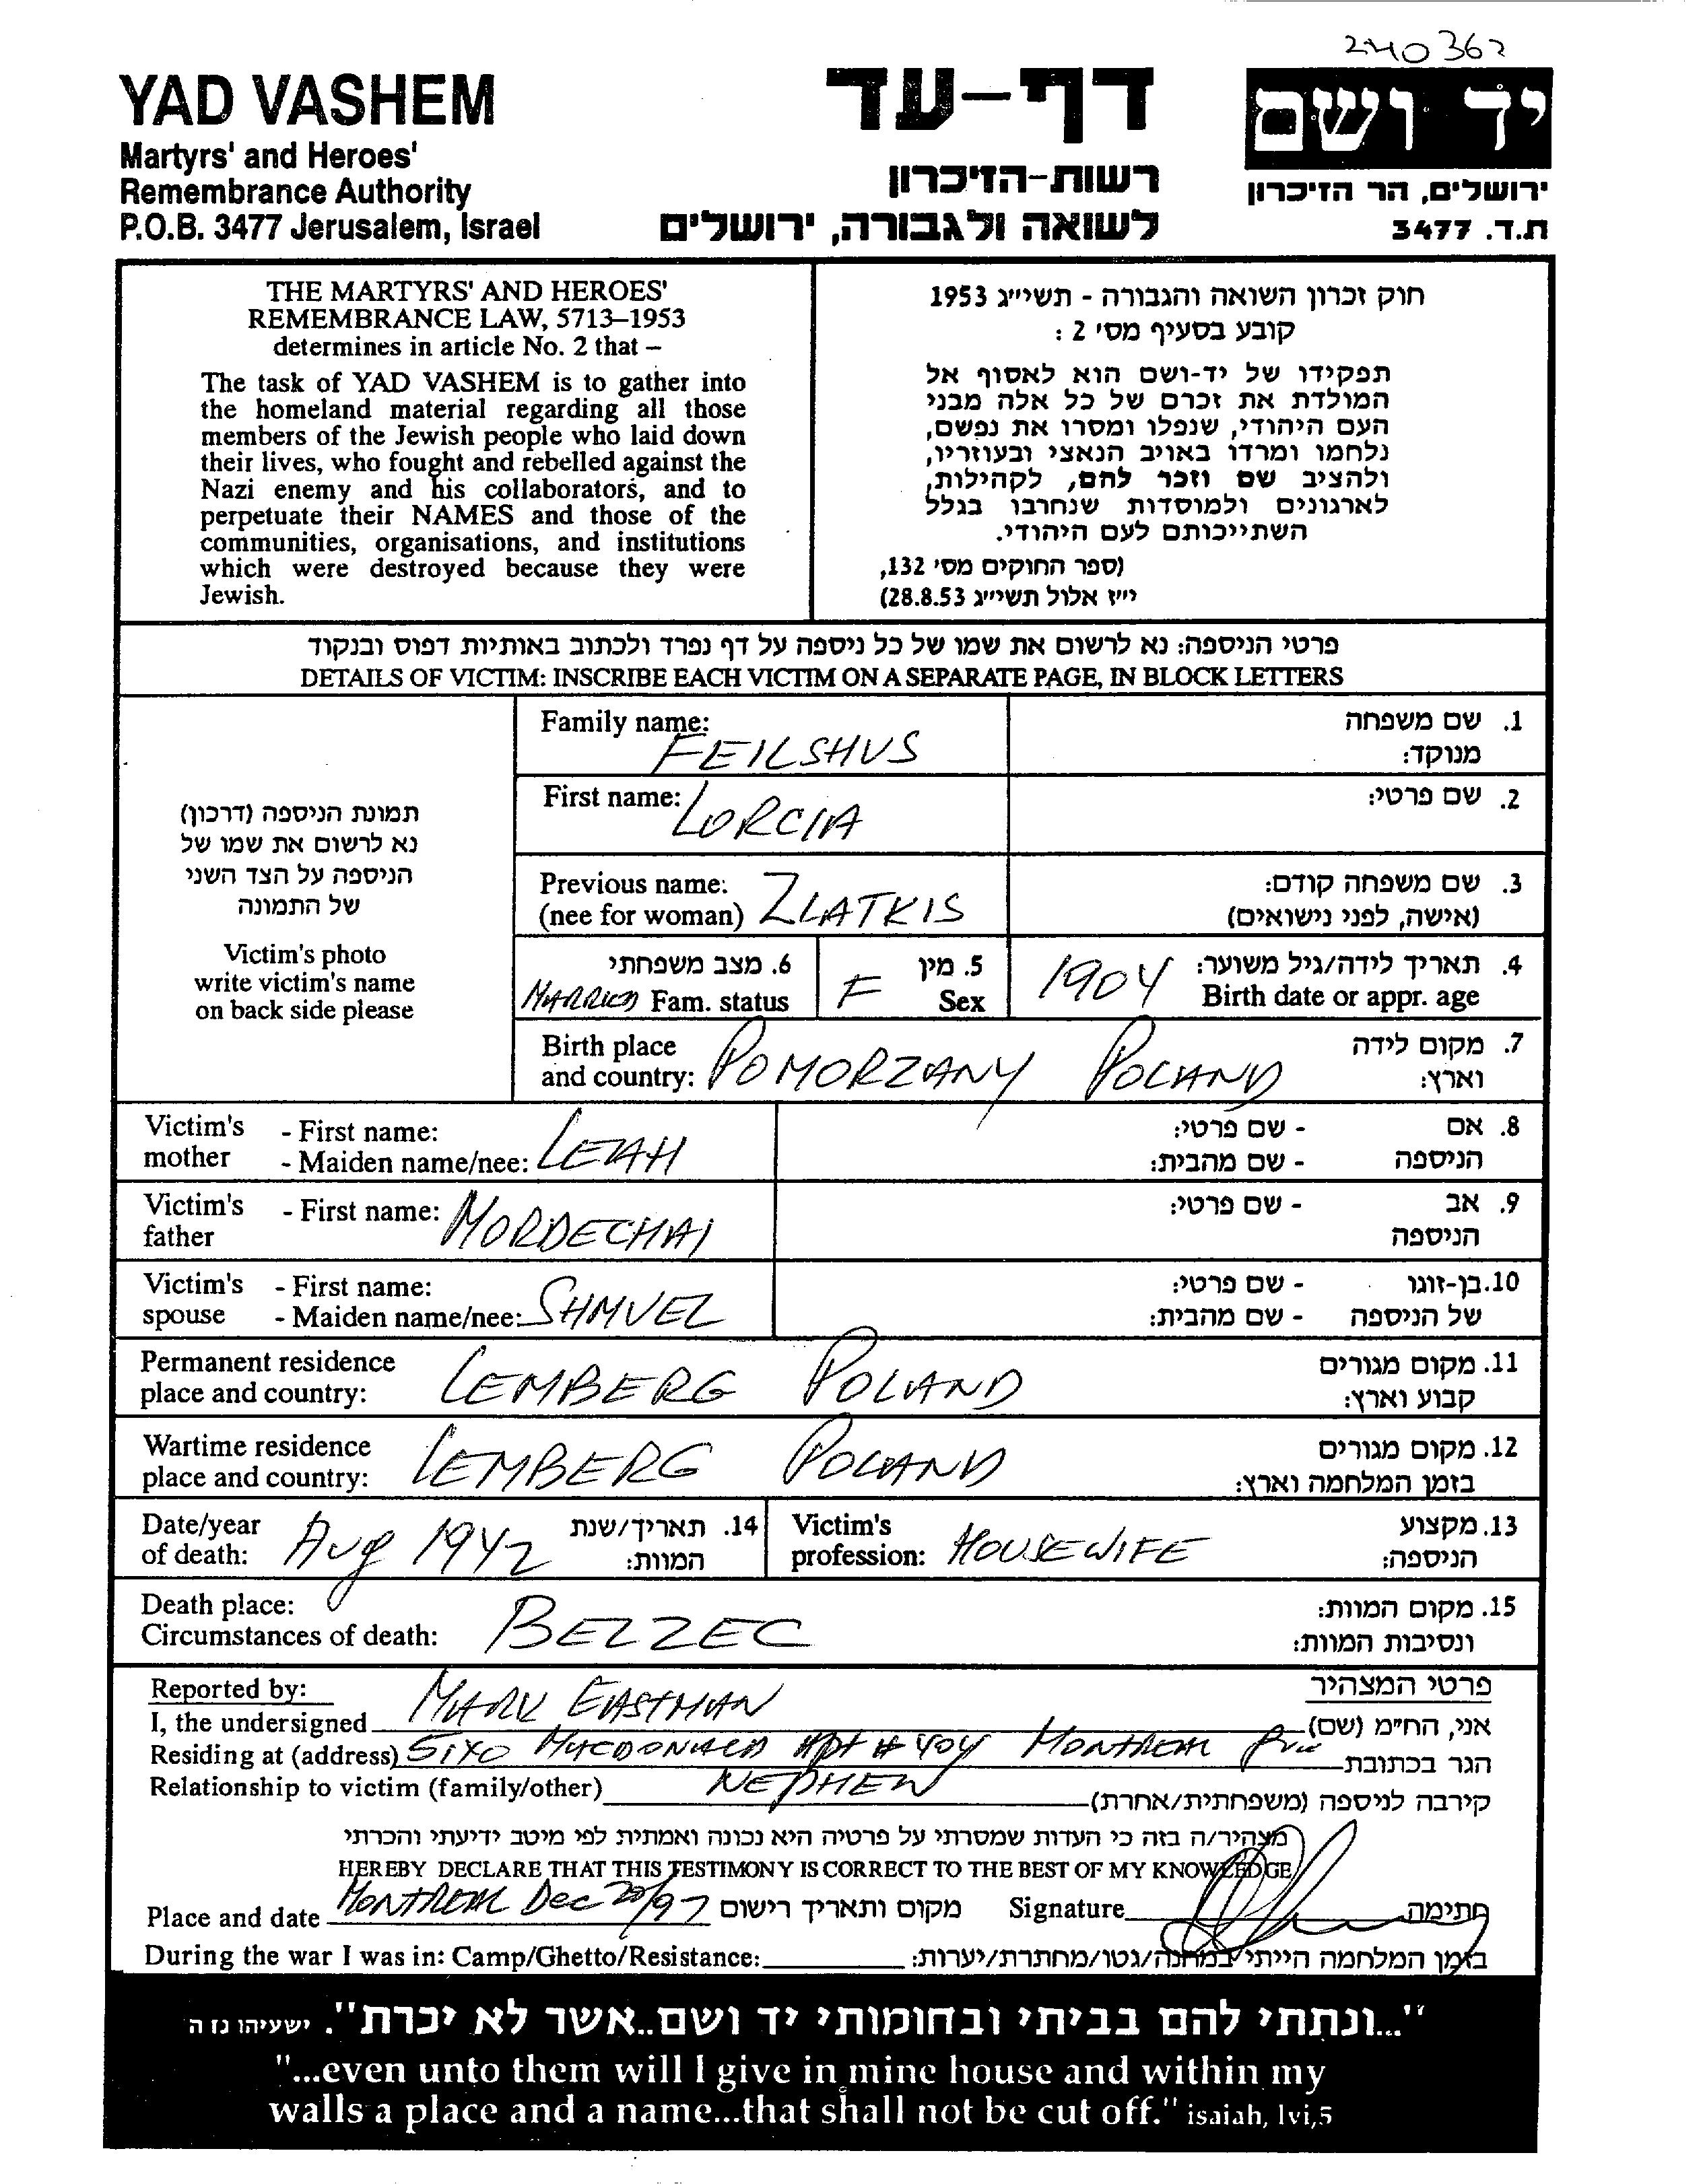 240362
YAD VASHEM
Martyrs' and Heroes'
Remembrance Authority
P.O.B. 3477 Jerusalem, Israel
דף-עד
רשות-הזיכרון
לשואה ולגבורה, ירושלים
יד ושם
ירושלים, הר הזיכרון
ת.ד. 3477
THE MARTYRS' AND HEROES'
REMEMBRANCE LAW, 5713–1953
determines in article No. 2 that –
The task of YAD VASHEM is to gather into
the homeland material regarding all those
members of the Jewish people who laid down
their lives, who fought and rebelled against the
Nazi enemy and his collaborators, and to
perpetuate their NAMES and those of the
communities, organisations, and institutions
which were destroyed because they were
Jewish.
חוק זכרון השואה והגבורה - תשי״ג 1953
קובע בסעיף מס׳ 2 :
תפקידו של יד-ושם הוא לאסוף אל
המולדת את זכרם של כל אלה מבני
העם היהודי, שנפלו ומסרו את נפשם,
נלחמו ומרדו באויב הנאצי ובעוזריו,
ולהציב שם וזכר להם, לקהילות,
לארגונים ולמוסדות שנחרבו בגלל
השתייכותם לעם היהודי.
(ספר החוקים מס׳ 132,
י״ז אלול תשי״ג 28.8.53)
פרטי הניספה: נא לרשום את שמו של כל ניספה על דף נפרד ולכתוב באותיות דפוס ובנקוד
DETAILS OF VICTIM: INSCRIBE EACH VICTIM ON A SEPARATE PAGE, IN BLOCK LETTERS
תמונת הניספה (דרכון)
נא לרשום את שמו של
הניספה על הצד השני
של התמונה
Victim's photo
write victim's name
on back side please
Family name: FEILSHUS
1. שם משפחה
מנוקד:
First name: LORCIA
2. שם פרטי:
Previous name:
(nee for woman) ZLATKIS
3. שם משפחה קודם:
(אישה, לפני נישואים)
6. מצב משפחתי
MARRIED Fam. status
5. מין
F Sex
4. תאריך לידה/גיל משוער:
1904 Birth date or appr. age
Birth place
and country: POMORZANY POLAND
7. מקום לידה
וארץ:
Victim's - First name:
mother - Maiden name/nee: LEAH
8. אם - שם פרטי:
הניספה - שם מהבית:
Victim's - First name: MORDECHAI
father
9. אב - שם פרטי:
הניספה
Victim's - First name:
spouse - Maiden name/nee: SHMUEL
10. בן-זוגו - שם פרטי:
של הניספה - שם מהבית:
Permanent residence
place and country: LEMBERG POLAND
11. מקום מגורים
קבוע וארץ:
Wartime residence
place and country: LEMBERG POLAND
12. מקום מגורים
בזמן המלחמה וארץ:
Date/year
of death: Aug 1942
14. תאריך/שנת
המוות:
Victim's
profession: HOUSEWIFE
13. מקצוע
הניספה:
Death place:
Circumstances of death: BELZEC
15. מקום המוות:
ונסיבות המוות:
Reported by:
פרטי המצהיר
I, the undersigned MARK EASTMAN אני, הח״מ (שם)
Residing at (address) 51XO MACDONALD APT # 404 MONTREAL הגר בכתובת
Relationship to victim (family/other) NEPHEW קירבה לניספה (משפחתית/אחרת)
מצהיר/ה בזה כי העדות שמסרתי על פרטיה היא נכונה ואמתית לפי מיטב ידיעתי והכרתי
HEREBY DECLARE THAT THIS TESTIMONY IS CORRECT TO THE BEST OF MY KNOWLEDGE
Place and date MONTREAL Dec 20/97 מקום ותאריך רישום Signature חתימה
During the war I was in: Camp/Ghetto/Resistance: בזמן המלחמה הייתי במחנה/גטו/מחתרת/יערות:
"...ונתתי להם בביתי ובחומותי יד ושם..אשר לא יכרת". ישעיהו נו ה
"...even unto them will I give in mine house and within my
walls a place and a name...that shall not be cut off." isaiah, lvi,5